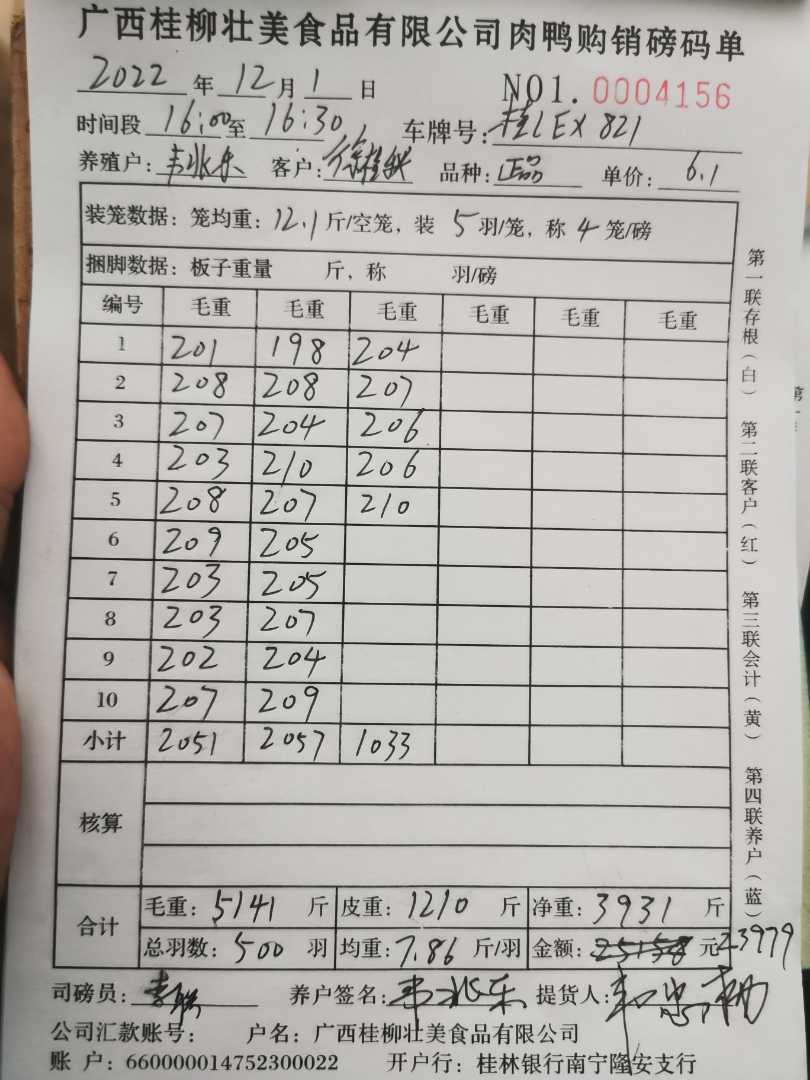 广西桂柳壮美食品有限公司肉鸭购销磅码单
2022 年 12 月 1 日 NO1. 0004156
时间段 16:00 至 16:30 车牌号: 桂LEX821
养殖户: 韦兆乐 客户: 品种: 正品 单价: 6.1
装笼数据: 笼均重: 12.1 斤/空笼, 装 5 羽/笼, 称 4 笼/磅
捆脚数据: 板子重量 斤, 称 羽/磅
编号 毛重 毛重 毛重 毛重 毛重 毛重
1 201 198 204
2 208 208 207
3 207 204 206
4 203 210 206
5 208 207 210
6 209 205
7 203 205
8 203 207
9 202 204
10 207 209
小计 2051 2057 1033
核算
合计 毛重: 5141 斤 皮重: 1210 斤 净重: 3931 斤
总羽数: 500 羽 均重: 7.86 斤/羽 金额: 25158 元 23979
司磅员: 养户签名: 韦兆乐 提货人:
公司汇款账号: 户名: 广西桂柳壮美食品有限公司
账 户: 660000014752300022 开户行: 桂林银行南宁隆安支行
第一联存根(白) 第二联客户(红) 第三联会计(黄) 第四联养户(蓝)